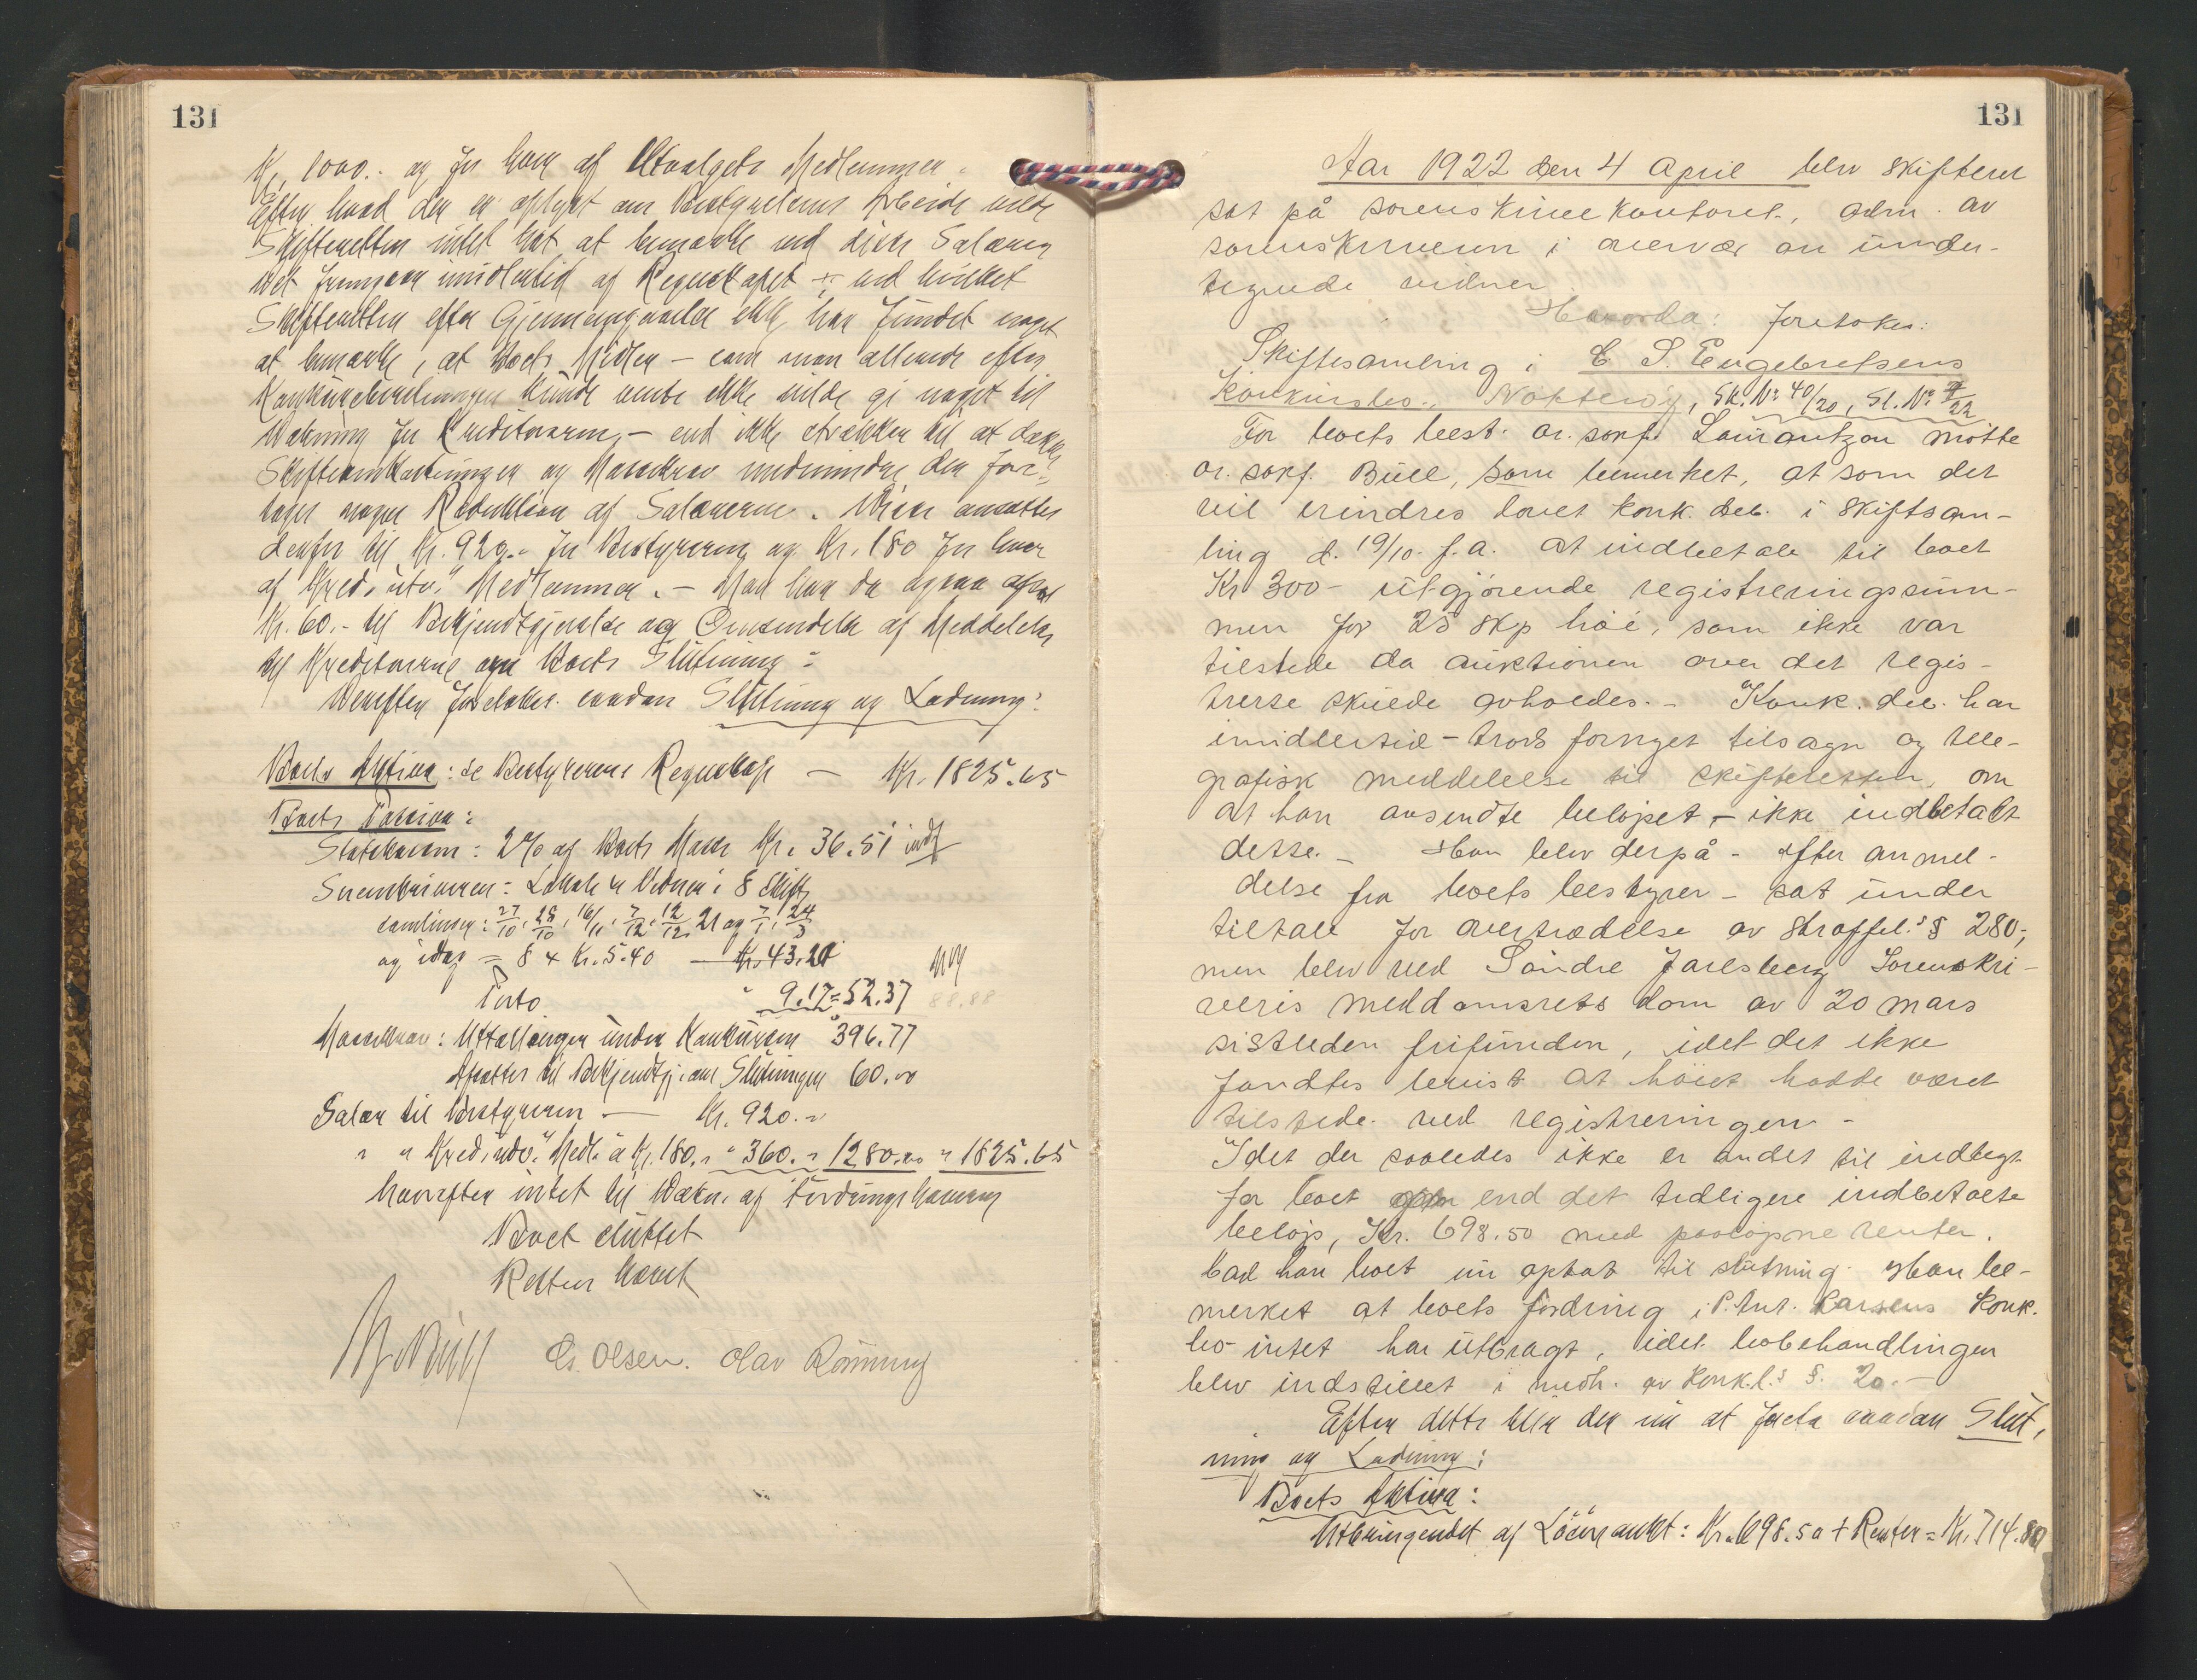 131
Kr. 1000.- og for hver af Utvalgets Medlemmer.
Efter hvad der er oplyst om Bestyrerens Arbeide vilde
Skifteretten intet hat at bemærke ved disse Salærer
Det fremgaar imidlertid af Regnskapet - ved hvilket
Skifteretten efter Gjennemgaaelse ikke har fundet noget
at bemærke, at Boets Midler - som man allerede efter
Konkursbehandlingen kunde vente ikke vilde gi noget til
Dækning for Kreditorerne, - end ikke strækker til at dække
Skifteomkostninger og Massekrav medmindre der fore-
tages nogen Reduktion af Salærerne. Disse ansættes
derfor til Kr. 920.- for Bestyreren og Kr. 180 for hver
af Kred.utv.s Medlemmer. - Man har da ogsaa afsat
Kr. 60.- til Bekjendtgjørelse og Omsendelse af Meddelelse
til Kreditorerne om Boets Slutning.
Derefter foretokes saadan Slutning og Lodning:
Boets Aktiva: se Bestyrerens Regnskap — Kr. 1825.65
Boets Passiva:
Statskassen: 2% af Boets Masse Kr. 36.51 indb
Sorenskriveren: Lokale & Vidner i 8 Skifte
samlinger: 27/10, 28/10, 16/11, 7/12, 12/12 21 og 7/1, 24/3
og idag = 8 x Kr. 5.40 — Kr. 43.20
Porto " 9.17 = 52.37
Massekrav: Uttællinger under Konkursen 396.77
Afsættes til Bekjendtgj. om Slutningen 60.00
Salær til Bestyreren — Kr. 920.-
" " Kred.utv.s Medl. a Kr. 180.- " 360.- " 1280.00 " 1825.65
Hvorefter intet til Dækn. af Fordringshaverne
Boet sluttet
Retten hævet
Cs. Olsen. Olav Rönning
131
Aar 1922 den 4 April blev skifteret
sat på sorenskriverkontoret, adm. av
sorenskriveren i overvær av under-
tegnede vidner.
Hvorda: foretokes:
Skiftesamling i C. S. Engebretsens
konkursbo, Nötteröy, Sk. No 40/20, Sl. No 7/22
For boets best. or. sakf. Laurantzon mötte
or. sakf. Bull, som bemerket, at som det
vil erindres lovet konk. deb. i skiftesam-
ling d. 19/10. f.a. at indbetale til boet
Kr 300- utgjørende registreringssum-
men for 25 skp höi, som ikke var
tilstede da auktionen over det regis-
trerte skulde avholdes. - Konk. deb. har
imidlertid - trods fornyet tilsagn og tele-
grafisk meddelelse til skifteretten, om
at han avsendte belöpet - ikke indbetalt
dette. - Han blev derpå - efter anmel-
delse fra boets bestyrer - sat under
tiltale for overtrædelse av straffel.s § 280-,
men blev ved Söndre Jarlsberg Sorenskri-
veris meddomsrets dom av 20 mars
sistleden frifunden, idet det ikke
fandtes bevist at höiet hadde været
tilstede ved registreringen -
Idet der saaledes ikke er andet til indtægt
for boet end det tidligere indbetalte
belöp, Kr. 698.50 med paalöpne renter,
bad han boet nu optat til slutning. Han be-
merket at boets fordring i P. Ant. Larsens konk.
bo intet har utbragt, idet bobehandlingen
blev indstillet i medh. av konk.l.s §. 20.-
Efter dette blir der nu at foreta saadan Slut-
ning og Lodning:
Boets Aktiva:
Utbringendet af Lösöreauket: Kr. 698.50 + Renter = Kr. 714.80